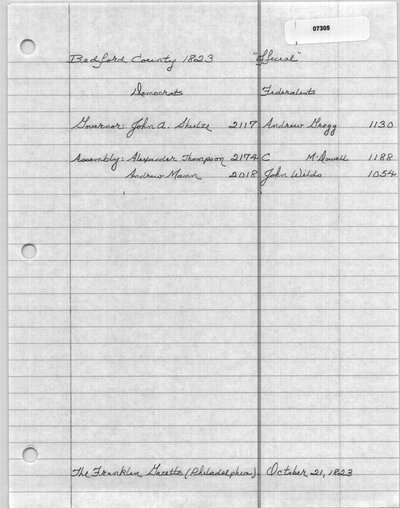 07305
Bedford County 1823 "Official"
Democrats Federalists
Governor: John A. Shulze 2117 Andrew Gregg 1130
Assembly: Alexander Thompson 2174 C McDowell 1188
Andrew Mann 2018 John Wilds 1054
The Franklin Gazette (Philadelphia), October 21, 1823